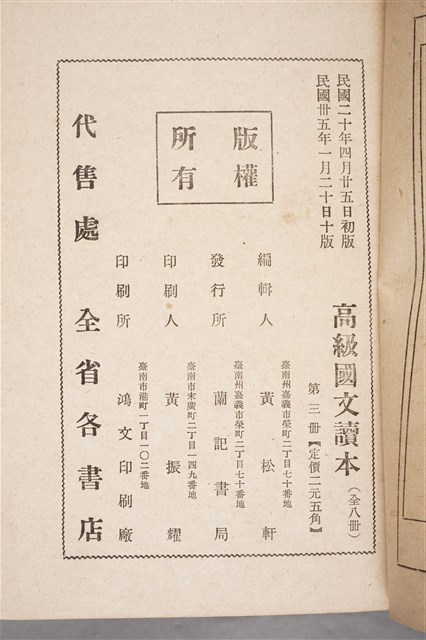 民國二十年四月廿五日初版
民國卅五年一月二十日十版
高級國文讀本（全八冊）
第三冊【定價二元五角】
版權
所有
臺南州嘉義市榮町二丁目七十番地
編輯人 黃松軒
臺南州嘉義市榮町二丁目七十番地
發行所 蘭記書局
臺南市末廣町二丁目一四九番地
印刷人 黃振耀
臺南市港町一丁目一〇二番地
印刷所 鴻文印刷廠
代售處 全省各書店